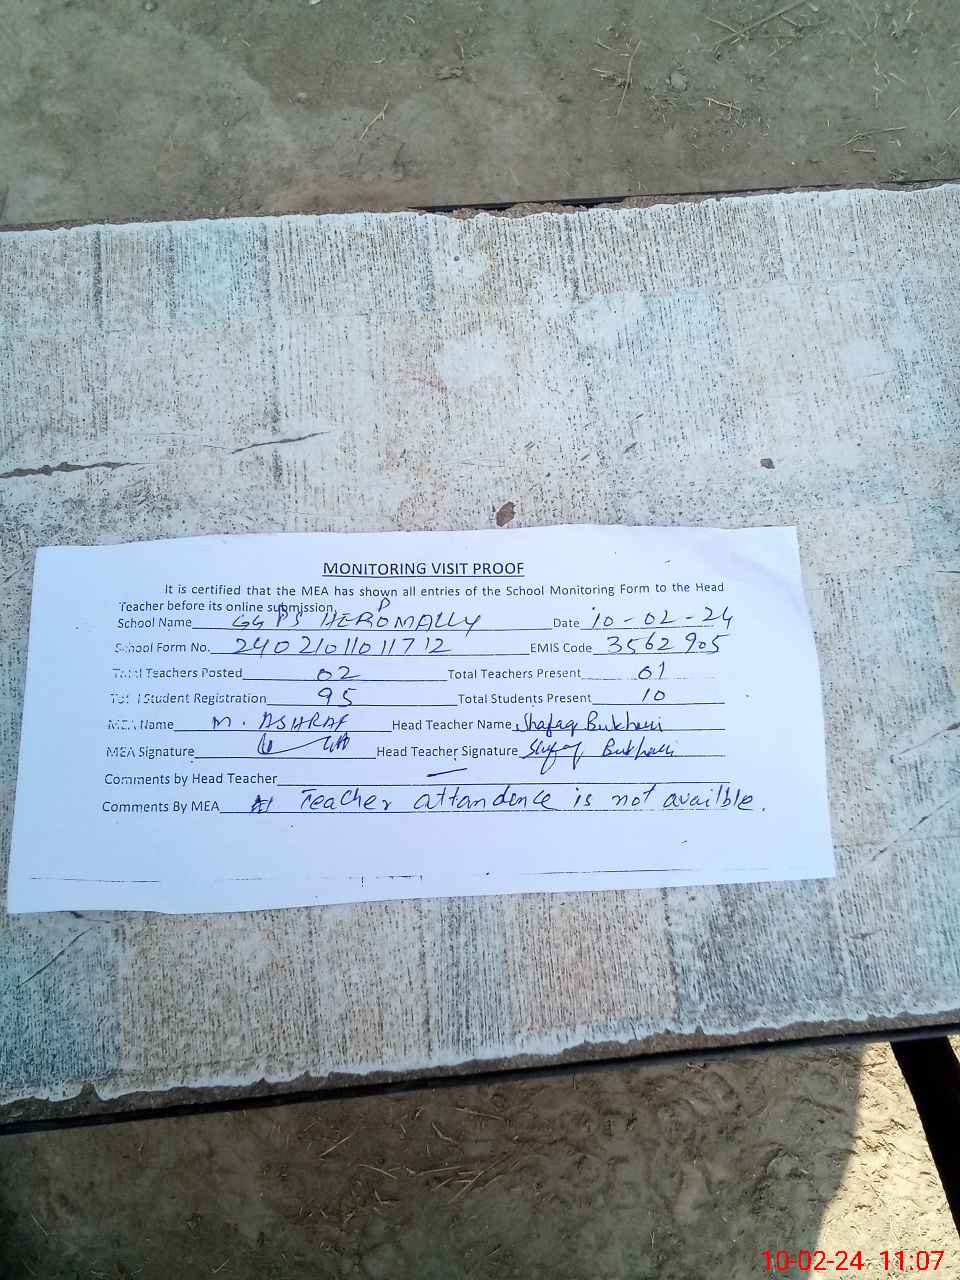 MONITORING VISIT PROOF
It is certified that the MEA has shown all entries of the School Monitoring Form to the Head
Teacher before its online submission.
School Name GGPS HEROMALLY Date 10-02-24
School Form No. 24021011011712 EMIS Code 3562905
Total Teachers Posted 02 Total Teachers Present 01
Total Student Registration 95 Total Students Present 10
MEA Name M. ASHRAF Head Teacher Name Shafaq Bukhari
MEA Signature Head Teacher Signature Shafaq Bukhari
Comments by Head Teacher —
Comments By MEA Teacher attandence is not availble.
10-02-24 11:07